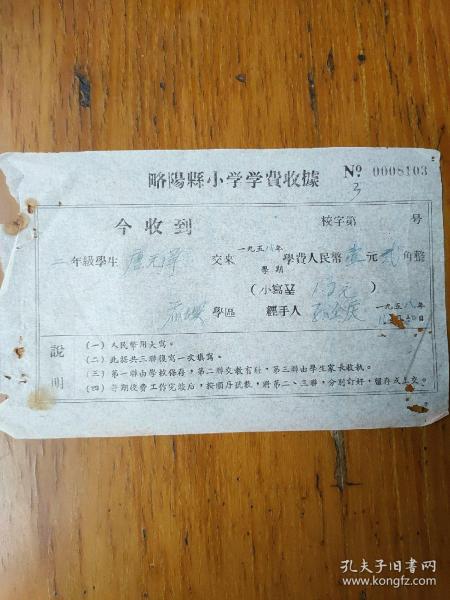 略陽縣小学学費收據 № 0008103
3
今收到 校字第 号
二年級學生 唐元華 交來 一九五八年 學期 學費人民幣 壹元 贰角整
(小寫 元)
學區 經手人 一九五八年
說明
(一)人民幣用大寫。
(二)此據共三聯復寫一次填寫。
(三)第一聯由學校保存,第二聯交教育社,第三聯由學生家長收执。
(四)每期收費工作完竣后,按順序號數,將第二、三聯,分别訂好,留存或上交。
孔夫子旧书网
www.kongfz.com